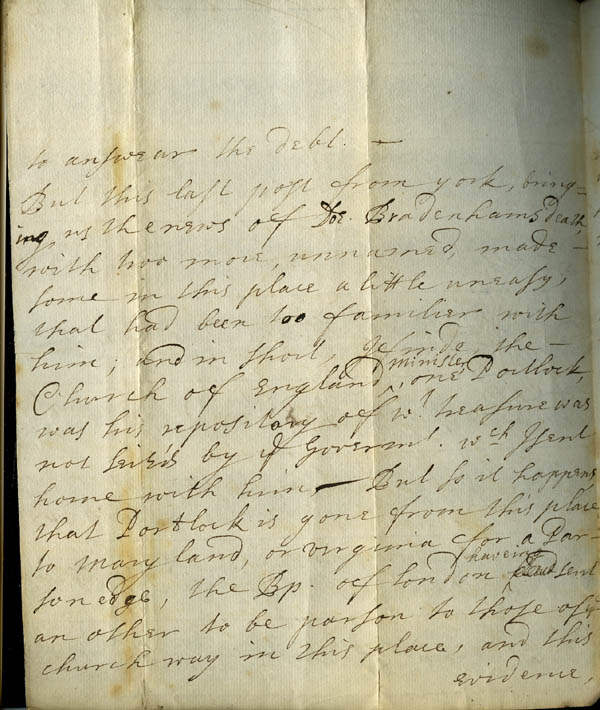 to answear the debt. —
But this last post from york, bring-
ing us the news of Doc. Bradenhams death,
with two more, unnamed, made
some in this place a little uneasy,
that had been too familier with
him; and in short, I finde, the
Church of England minister, one Portlock,
was his repository of wt. treasure was
not seiz'd by ye Governmt. wch I sent
home with him, — But so it happens
that Portlock is gone from this place
to maryland, or virginia for a Par-
sonedge, the Bp. of london haveing sent
an other to be parson to those of ye
church way in this place, and this
evidence,